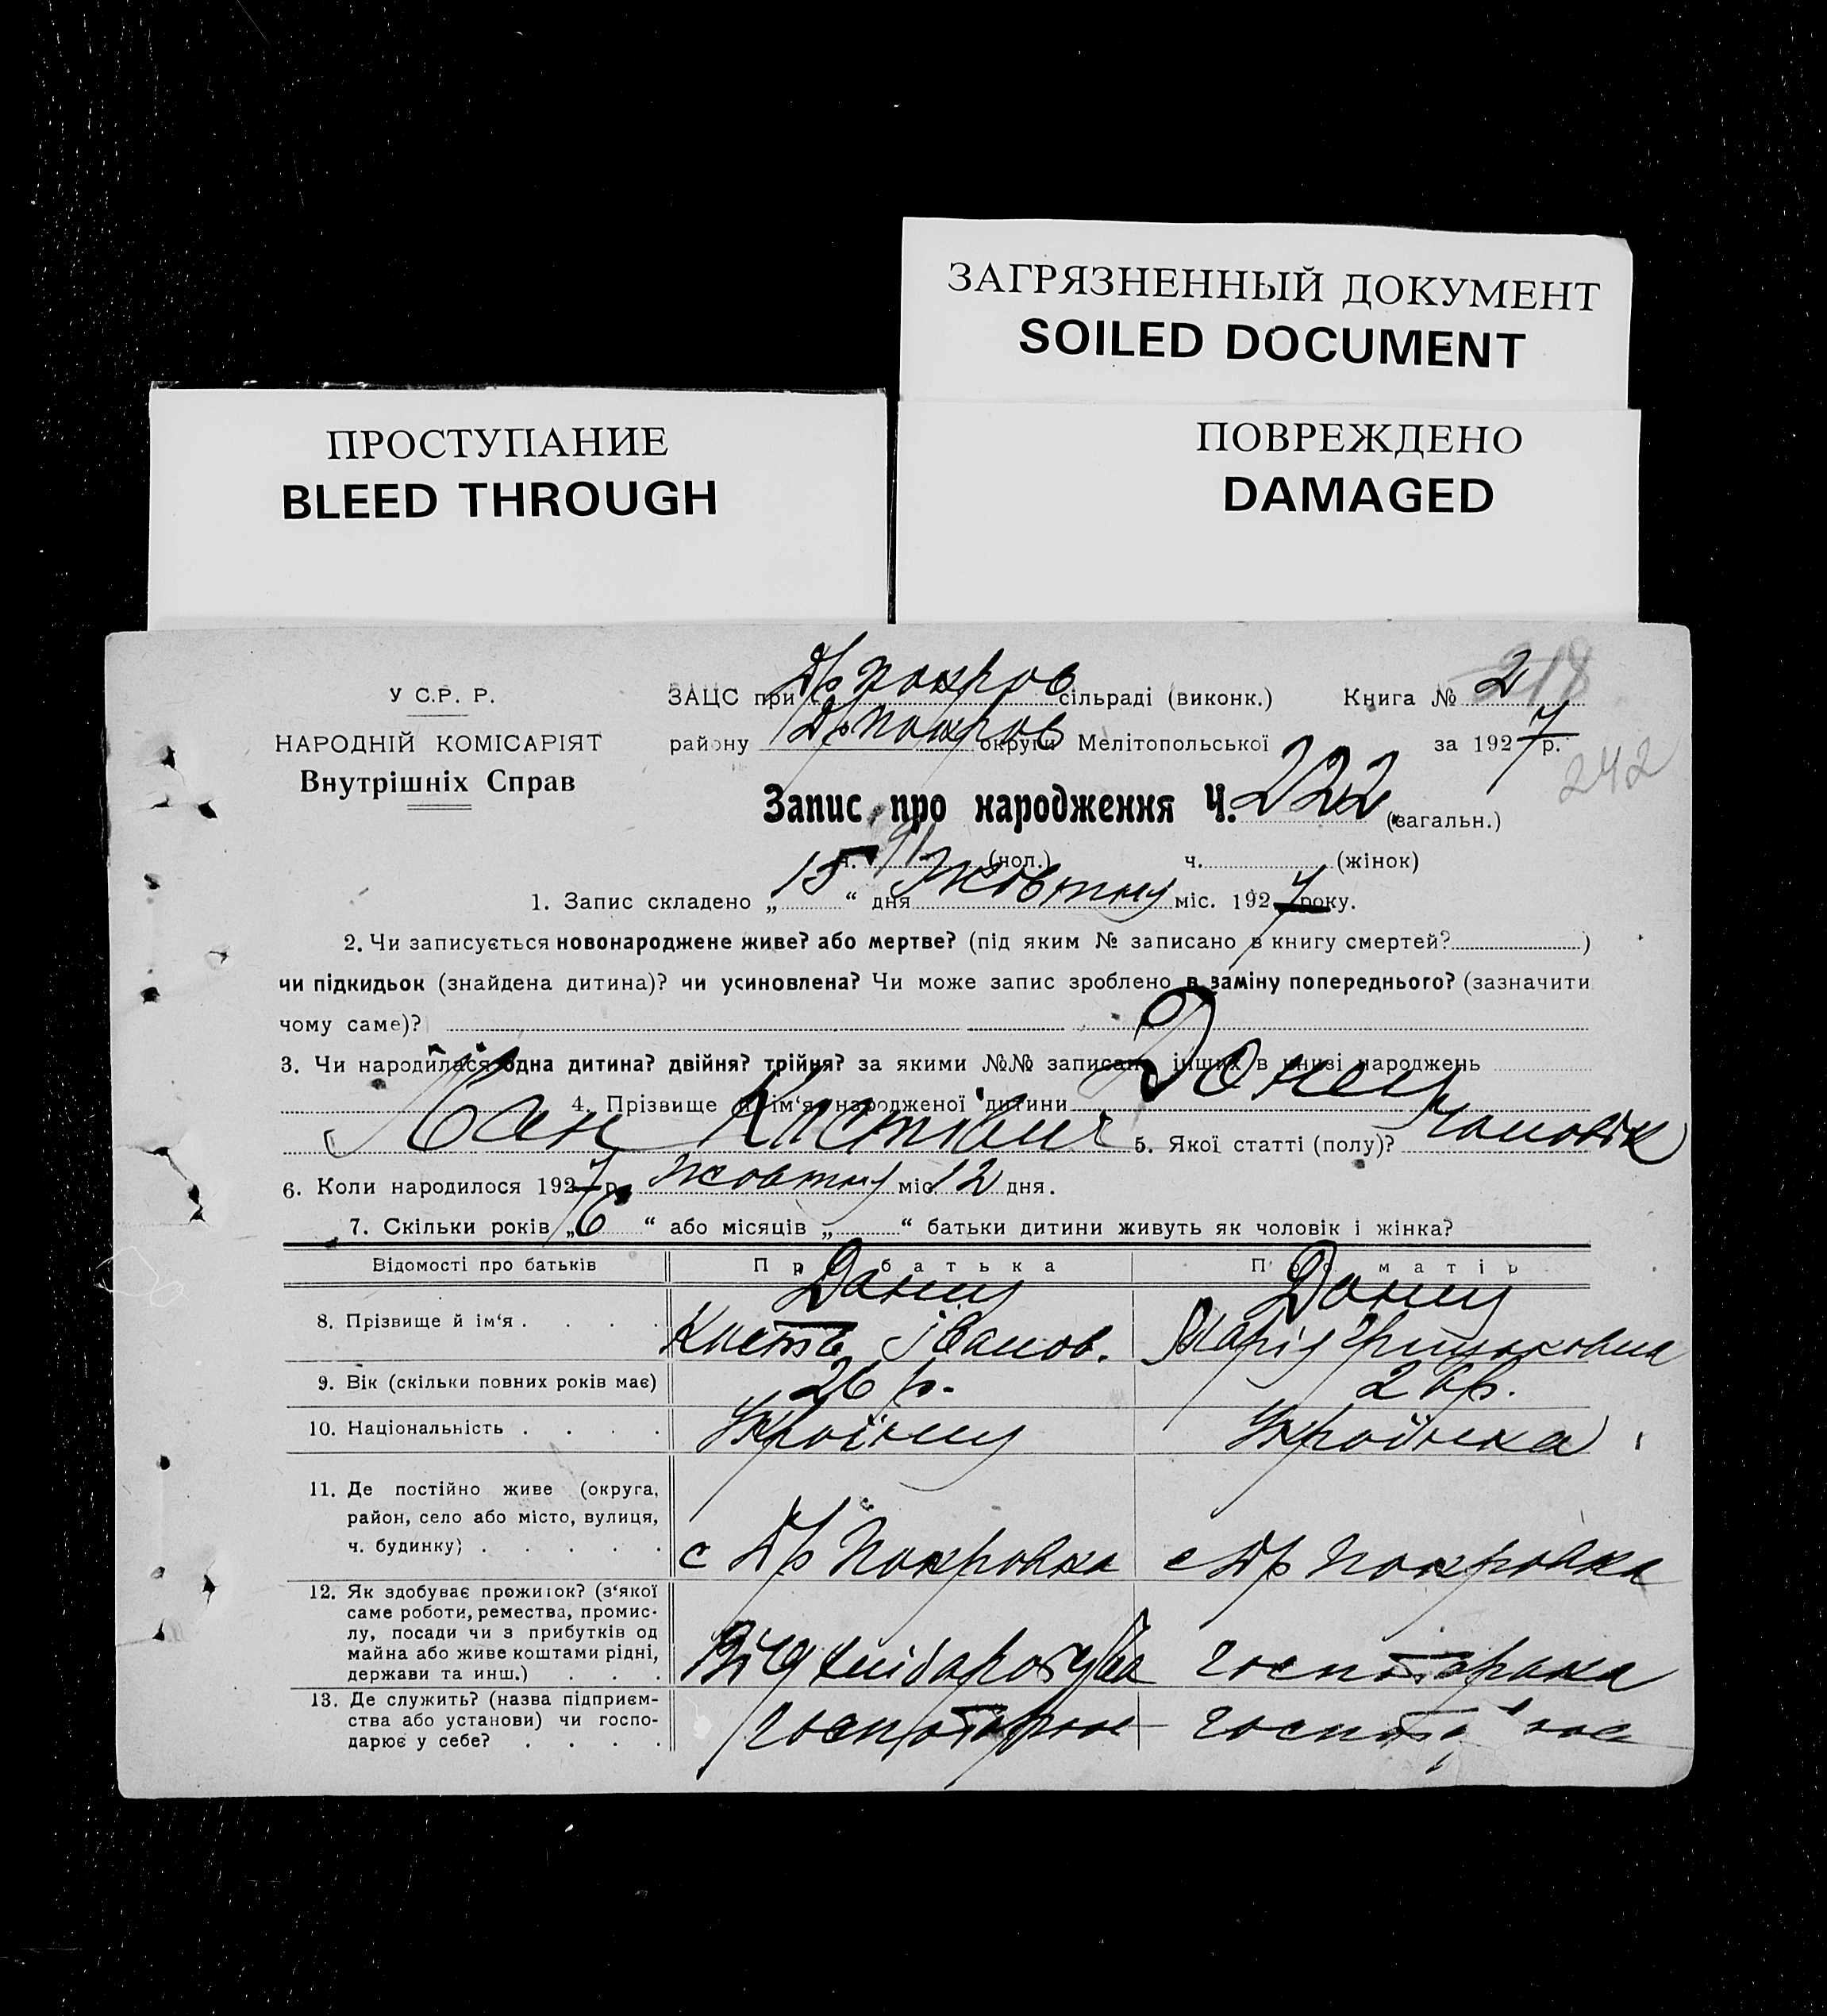 ЗАГРЯЗНЕННЫЙ ДОКУМЕНТ
SOILED DOCUMENT
ПРОСТУПАНИЕ
BLEED THROUGH
ПОВРЕЖДЕНО
DAMAGED
У С.Р. Р.
НАРОДНІЙ КОМІСАРІЯТ
Внутрішніх Справ
ЗАЦС при Др Покров сільраді (виконк.) Книга № 2 218
району Др Покров округи Мелітопольської за 1927 р.
242
Запис про народження Ч. 222 (загальн.)
ч. 91 (чол.) ч. (жінок)
1. Запис складено „15“ дня Жовтню міс. 1927 року.
2. Чи записується новонароджене живе? або мертве? (під яким № записано в книгу смертей? )
чи підкидьок (знайдена дитина)? чи усиновлена? Чи може запис зроблено в заміну попереднього? (зазначити
чому саме)?
3. Чи народилася одна дитина? двійня? трійня? за якими №№ записано інших в книзі народжень
4. Прізвище й ім‘я народженої дитини Донец
Іван Костівич 5. Якої статті (полу)? Чоловік
6. Коли народилося 1927 р. Жовтню міс. 12 дня.
7. Скільки років „6“ або місяців „ “ батьки дитини живуть як чоловік і жінка?
Відомості про батьків Про батька Про матір
8. Прізвище й ім‘я . . . . Донец Костя Іванов. Донец Марія
9. Вік (скільки повних років має) 26 р. 26 р.
10. Національність . . . . Українец Українка
11. Де постійно живе (округа,
район, село або місто, вулиця,
ч. будинку) . . . . . с Др Покровка с Др Покровка
12. Як здобуває прожиток? (з‘якої
саме роботи, ремества, промис-
лу, посади чи з прибутків од
майна або живе коштами рідні,
держави та инш.) . . .
13. Де служить? (назва підприєм-
ства або установи) чи госпо-
дарює у себе? . . . .